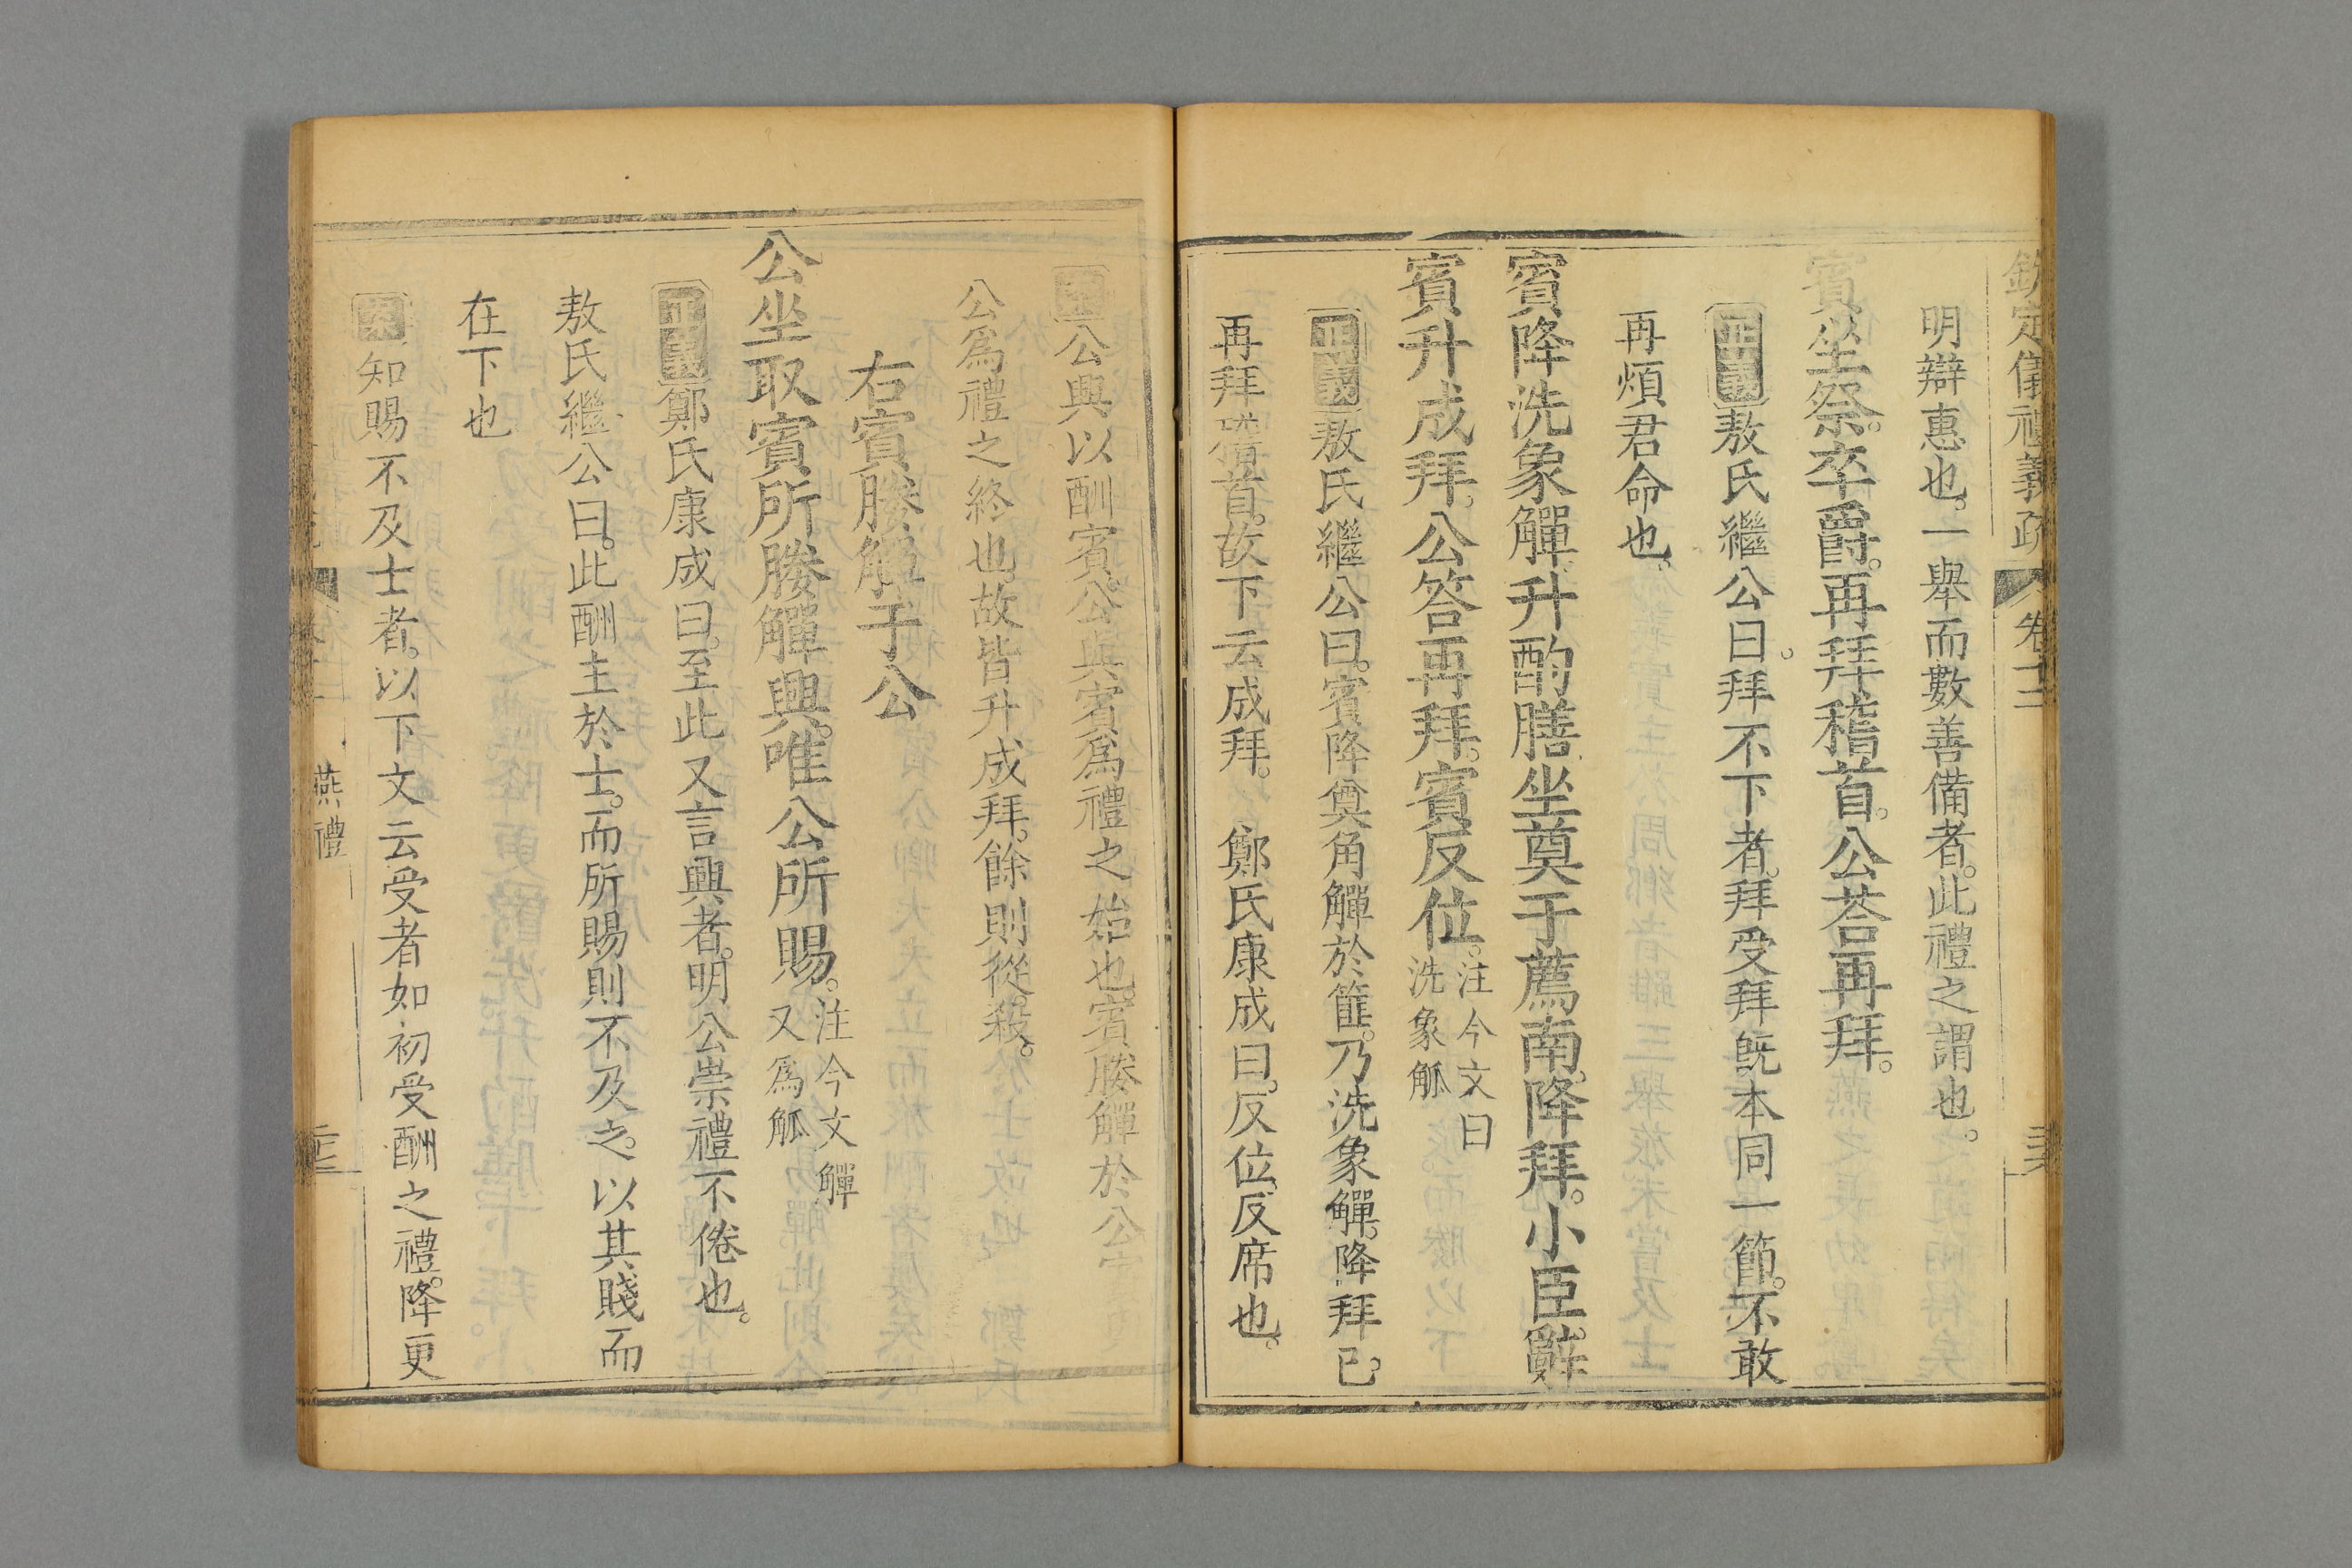 欽定儀禮義疏 卷十二
明辯惠也。一舉而數善備者。此禮之謂也。
賓坐祭。卒爵。再拜稽首。公荅再拜。
正義敖氏繼公曰。拜不下者。拜受拜旣本同一節。不敢
再煩君命也。
賓降洗象觶。升酌膳。坐奠于薦南。降拜。小臣辭。
賓升成拜。公答再拜。賓反位。注今文曰
洗象觚
正義敖氏繼公曰。賓降奠角觶於篚。乃洗象觶。降拜已。
再拜稽首。故下云成拜。 鄭氏康成曰。反位。反席也。
公與以酬賓。公與賓爲禮之始也。賓媵觶於公
公爲禮之終也。故皆升成拜。餘則從殺。
右賓媵觶于公
公坐取賓所媵觶興。唯公所賜。注今文觶
又爲觚
正義鄭氏康成曰。至此又言興者。明公崇禮不倦也。
敖氏繼公曰。此酬主於士。而所賜則不及之。以其賤而
在下也
案知賜不及士者。以下文云受者如初受酬之禮。降更
燕禮